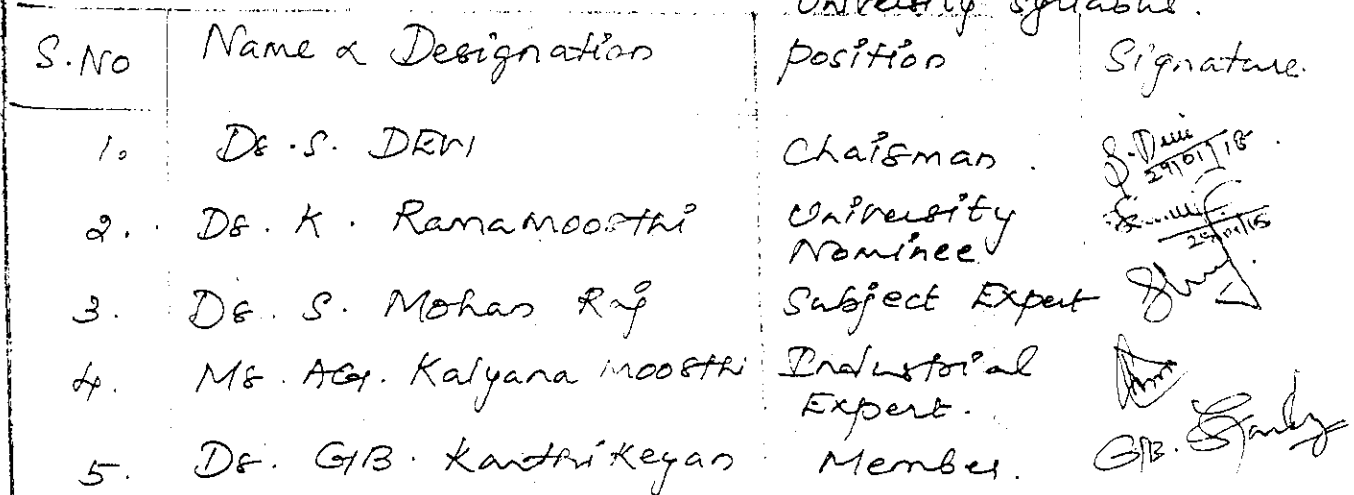 University Syllabus.
S.No Name & Designation Position Signature.
1. Dr. S. DEVI Chairman. S. Devi 29/01/15
2. Dr. K. Ramamoorthi University Nominee
3. Dr. S. Mohan Raj Subject Expert
4. Mr. AG. Kalyana moorthi Industrial Expert.
5. Dr. GB. Karthikeyan Member. GB.